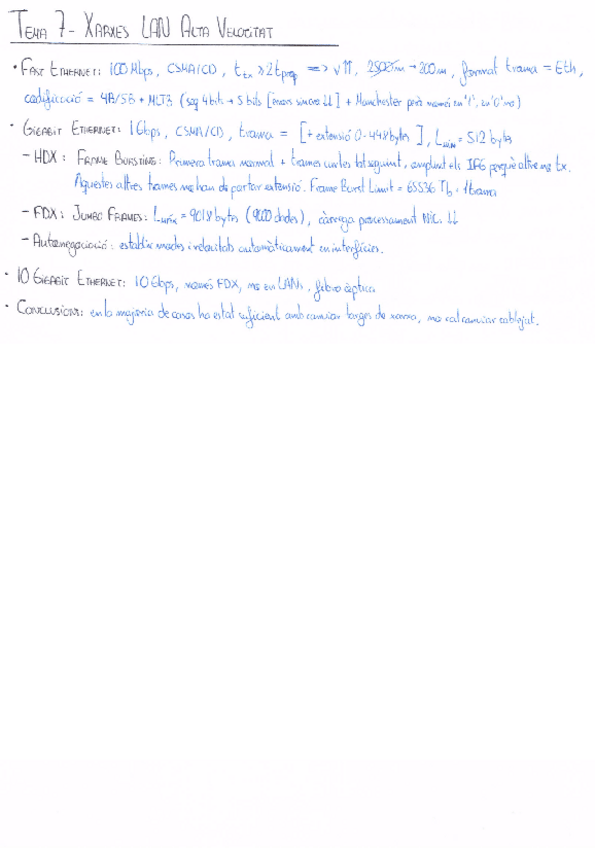 TEMA 7 - XARXES LAN ALTA VELOCITAT
• FAST ETHERNET: 100 Mbps, CSMA/CD, t_tx ≥ 2t_prop => v↑↑, 2500m → 200m, format trama = Eth,
codificació = 4B/5B + MLT3 (seq 4bits → 5 bits [errors sincro ↓↓] + Manchester però només en '1', en '0' no)
• GIGABIT ETHERNET: 1Gbps, CSMA/CD, trama = [+ extensió 0-448 bytes], Lmin = 512 bytes
- HDX: FRAME BURSTING: Primera trama normal + trames curtes tot seguint, omplint els IFG perquè altre no tx.
Aquestes altres trames no han de portar extensió. Frame Burst Limit = 65536 Tb + 1 trama
- FDX: JUMBO FRAMES: Lmàx = 9018 bytes (9000 dades), càrrega processament NIC ↓↓
- Autonegociació: establir modes i velocitats automàticament en interfícies.
• 10 GIGABIT ETHERNET: 10 Gbps, només FDX, no en LANs, fibra òptica
• CONCLUSIONS: en la majoria de casos ha estat suficient amb canviar targes de xarxa, no cal canviar cablejat.